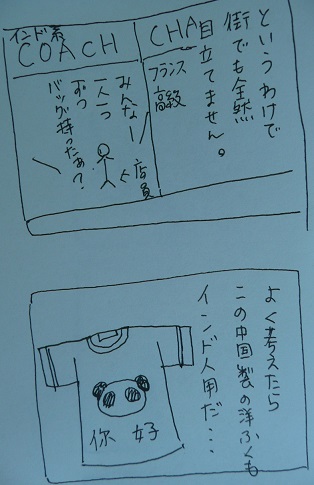 というわけで
街でも全然
目立てません。
CHA
フランス
高級
インド系
COACH
みんなー
一人一つ
ずつ
バッグ持ったぁ?
店員
よく考えたら
この中国製の洋ふくも
インド人用だ…
你好